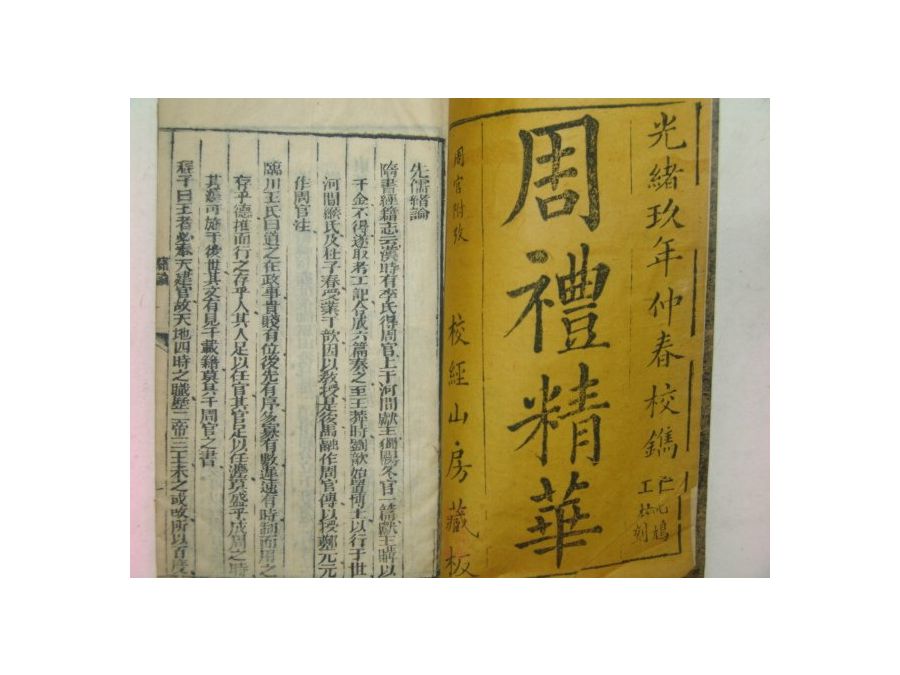 光緒玖年仲春校鐫
周禮精華
周官附攷
校經山房藏板
先儒緒論
隋書經籍志云漢時有李氏得周官上于河間獻王獨闕冬官一篇獻王購以
千金不得遂取考工記合成六篇奏之至王莽時劉歆始置博士以行于世
河間緱氏及杜子春受業于歆因以教授是後馬融作周官傳以授鄭元元
作周官注
臨川王氏曰道之在政事貴賤有位後先有序多寡有數遲速有時制而用之
存乎灋推而行之存乎人其人足以任官其官足以任灋莫盛乎成周之時
其灋可施于後世其文有見于載籍莫具于周官之書
程子曰王者必奉天建官故天地四時之職歷二帝三王未之或改所以百度
緒論